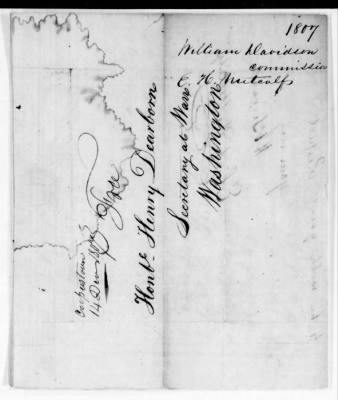 1807
William Davidson
commission
C. H. Metcalf
Honble. Henry Dearborn
Secretary at War
Washington
Cooperstown
14 Dec
Free